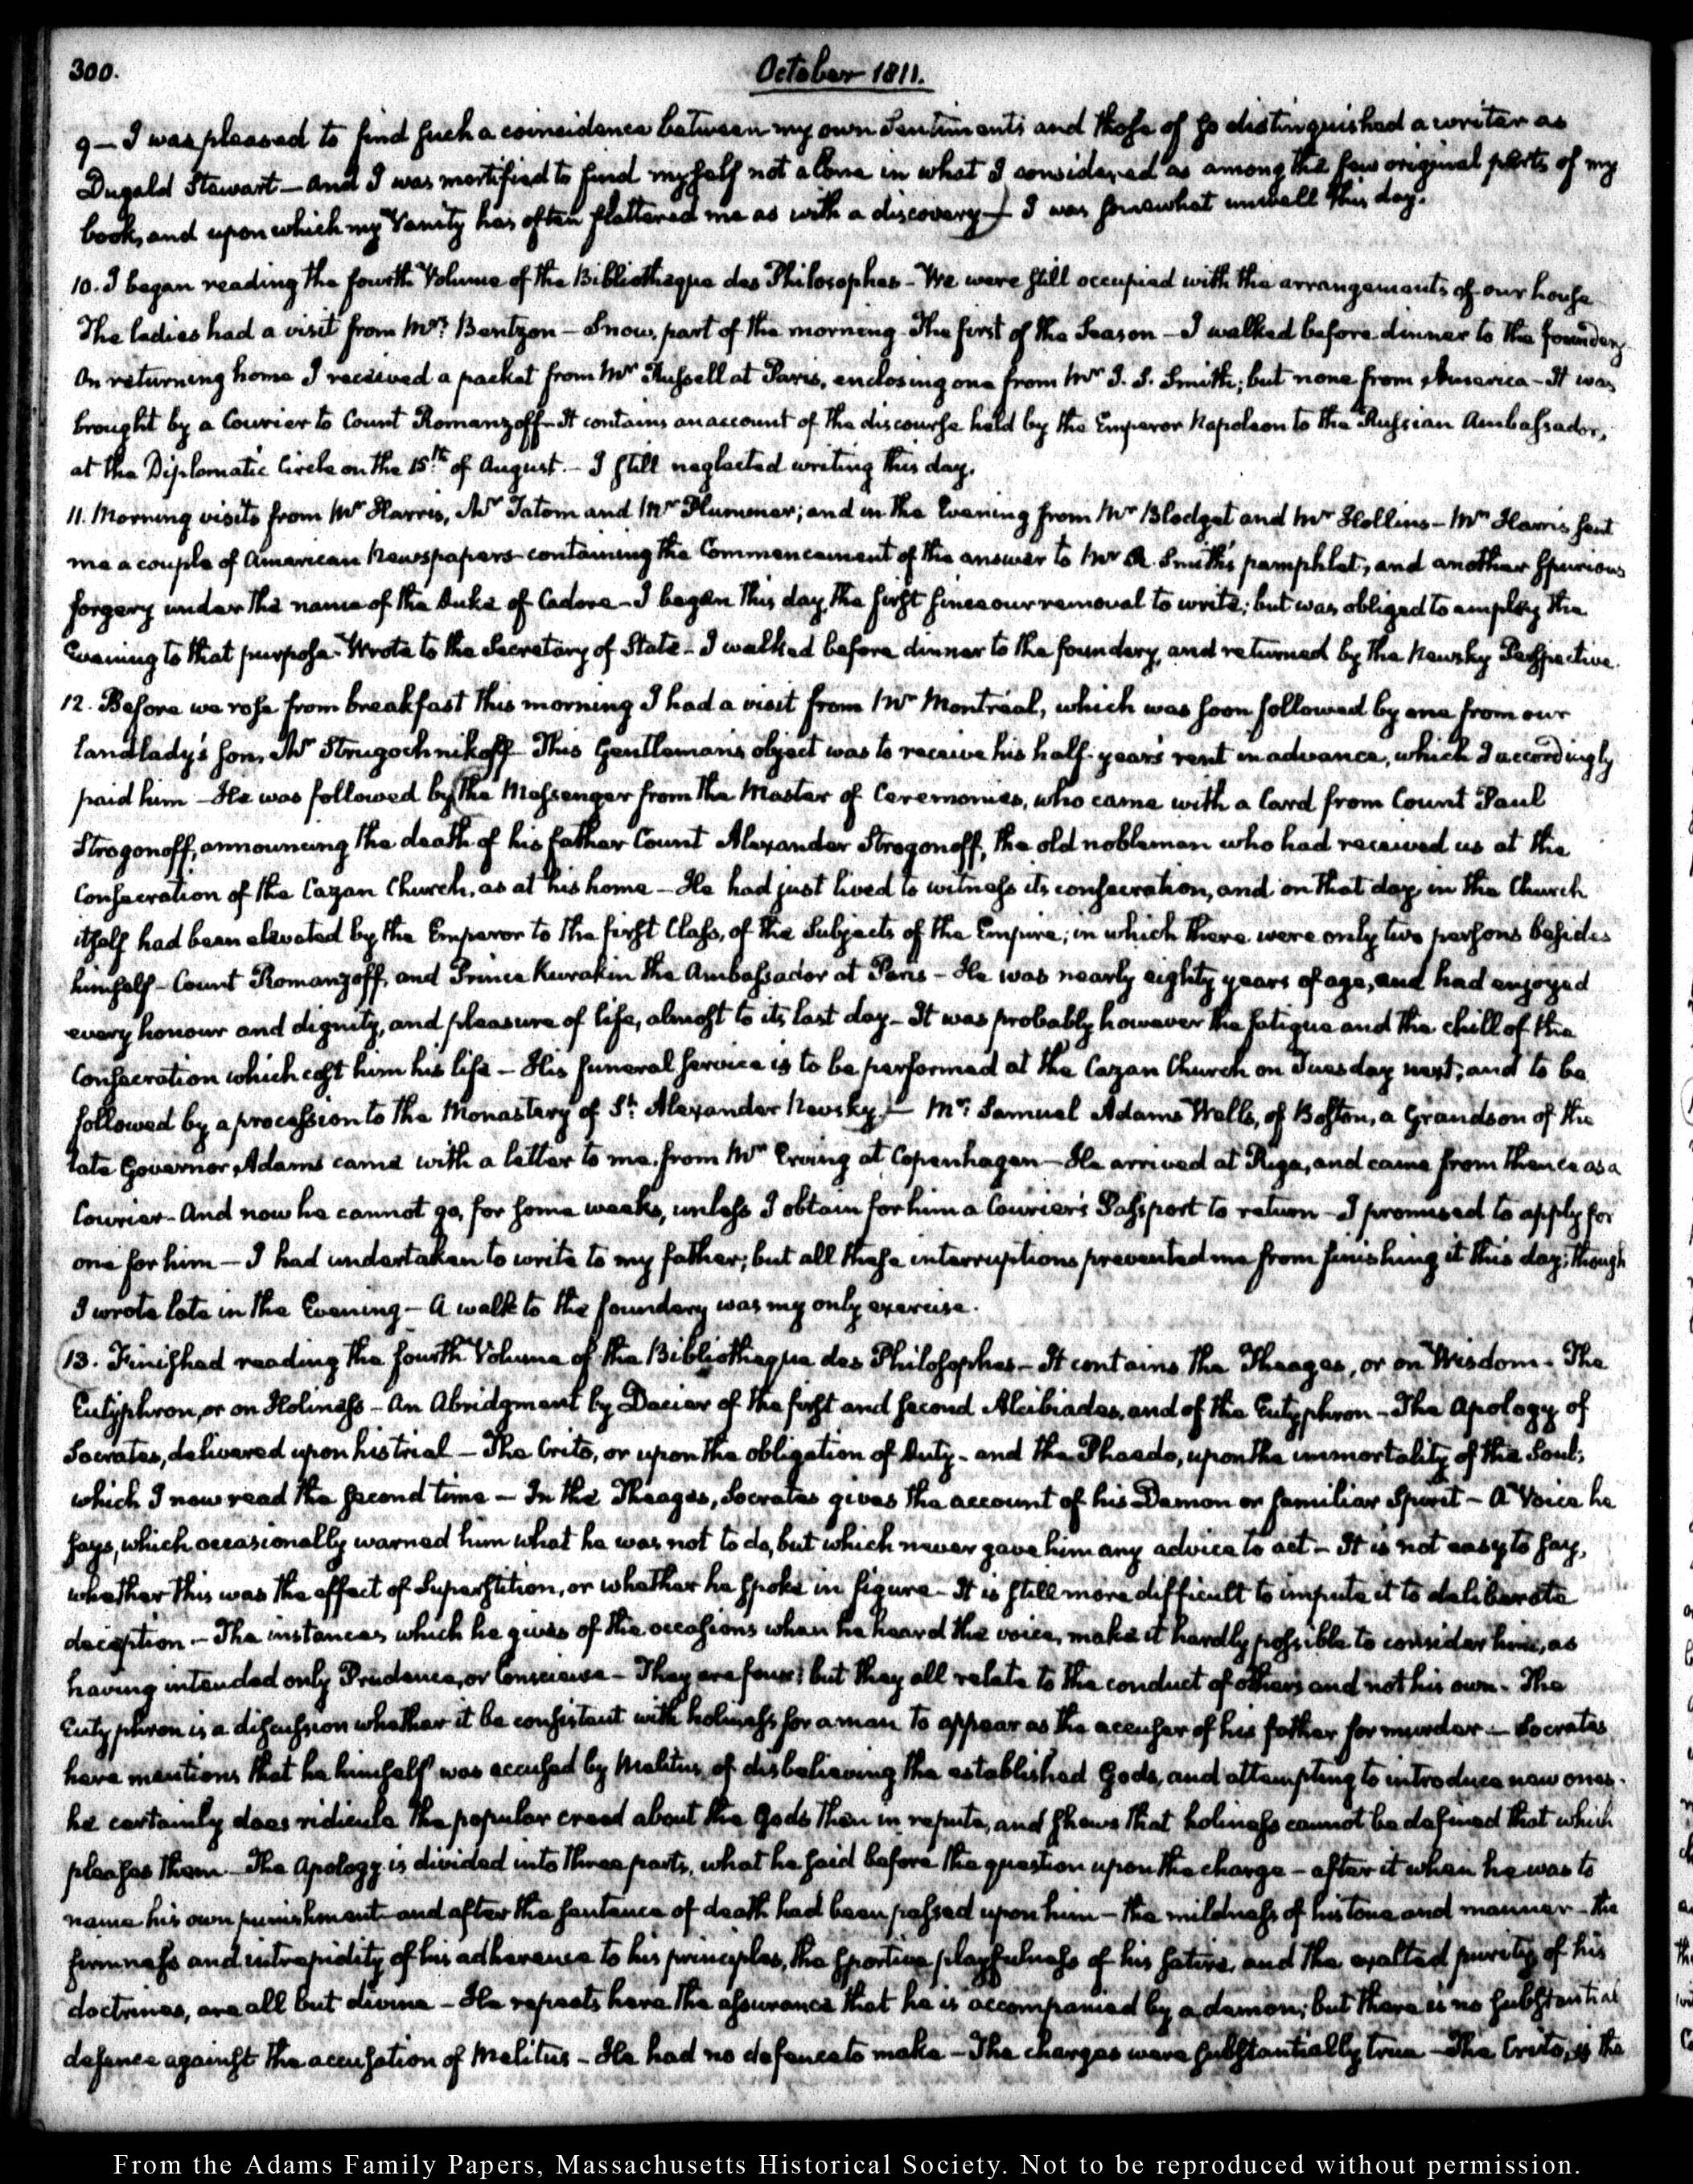 300.
October 1811.
9 — I was pleased to find such a coincidence between my own Sentiments and those of so distinguished a writer as
Dugald Stewart — and I was mortified to find myself not alone in what I considered as among the few original parts of my
book, and upon which my Vanity has often flattered me as with a discovery — I was somewhat unwell this day.
10. I began reading the fourth Volume of the Bibliotheque des Philosophes — We were still occupied with the arrangements of our house
The ladies had a visit from Mrs: Bentzon — Snow, part of the morning. The first of the Season — I walked before dinner to the foundery
On returning home I received a packet from Mr Russell at Paris, enclosing one from Mr J. S. Smith; but none from America — It was
brought by a Courier to Count Romanzoff — It contains an account of the discourse held by the Emperor Napoleon to the Russian Ambassador,
at the Diplomatic Circle on the 15th of August. — I still neglected writing this day.
11. Morning visits from Mr Harris, Mr Tatom and Mr Plummer; and in the Evening from Mr Blodget and Mr Hollins — Mr Harris sent
me a couple of American Newspapers containing the Commencement of the answer to Mr R. Smith's pamphlet, and another spurious
forgery under the name of the Duke of Cadore — I began this day the first since our removal to write; but was obliged to employ the
Evening to that purpose — Wrote to the Secretary of State — I walked before dinner to the foundery, and returned by the Newsky Perspective.
12. Before we rose from breakfast this morning I had a visit from Mr Montréal, which was soon followed by one from our
landlady's son, Mr Strugochnikoff — This Gentleman's object was to receive his half-year's rent in advance, which I accordingly
paid him — He was followed by the Messenger from the Master of Ceremonies, who came with a Card from Count Paul
Strogonoff, announcing the death of his father Count Alexander Strogonoff, the old nobleman who had received us at the
Consecration of the Cazan Church, as at his home — He had just lived to witness its consecration, and on that day, in the Church
itself had been elevated by the Emperor to the first Class, of the Subjects of the Empire; in which there were only two persons besides
himself — Count Romanzoff, and Prince Kurakin the Ambassador at Paris — He was nearly eighty years of age, and had enjoyed
every honour and dignity, and pleasure of life, almost to its last day — It was probably however the fatigue and the chill of the
Consecration which cost him his life — His funeral service is to be performed at the Cazan Church on Tuesday next; and to be
followed by a procession to the Monastery of St: Alexander Newsky. — Mr: Samuel Adams Wells, of Boston, a Grandson of the
late Governor Adams came with a letter to me from Mr Erving at Copenhagen — He arrived at Riga, and came from thence as a
Courier — And now he cannot go, for some weeks, unless I obtain for him a Courier's Passport to return — I promised to apply for
one for him — I had undertaken to write to my father; but all these interruptions prevented me from finishing it this day; though
I wrote late in the Evening — A walk to the foundery was my only exercise.
13. Finished reading the fourth Volume of the Bibliotheque des Philosophes — It contains the Theages, or on Wisdom — The
Eutyphron, or on Holiness — An Abridgment by Dacier of the first and second Alcibiades, and of the Eutyphron — The Apology of
Socrates, delivered upon his trial — The Crito, or upon the obligation of Duty — and the Phaedo, upon the immortality of the Soul;
which I now read the second time — In the Theages, Socrates gives the account of his Demon or familiar Spirit — A Voice he
says, which occasionally warned him what he was not to do, but which never gave him any advice to act — It is not easy to say,
whether this was the effect of Superstition, or whether he spoke in figure — It is still more difficult to impute it to deliberate
deception — The instances which he gives of the occasions when he heard the voice, make it hardly possible to consider him, as
having intended only Prudence, or Conscience — They are four; but they all relate to the conduct of others and not his own — The
Eutyphron is a discussion whether it be consistent with holiness for a man to appear as the accuser of his father for murder — Socrates
here mentions that he himself was accused by Melitus, of disbelieving the established Gods, and attempting to introduce new ones.
he certainly does ridicule the popular creed about the Gods then in repute, and shews that holiness cannot be defined that which
pleases them — The Apology is divided into three parts, what he said before the question upon the charge — after it when he was to
name his own punishment — and after the sentence of death had been passed upon him — the mildness of his tone and manner — the
firmness and intrepidity of his adherence to his principles, the sportive playfulness of his satire, and the exalted purity of his
doctrines, are all but divine — He repeats here the assurance that he is accompanied by a demon; but there is no substantial
defence against the accusation of Melitus — He had no defence to make — The charges were substantially true — The Crito, is the
From the Adams Family Papers, Massachusetts Historical Society. Not to be reproduced without permission.